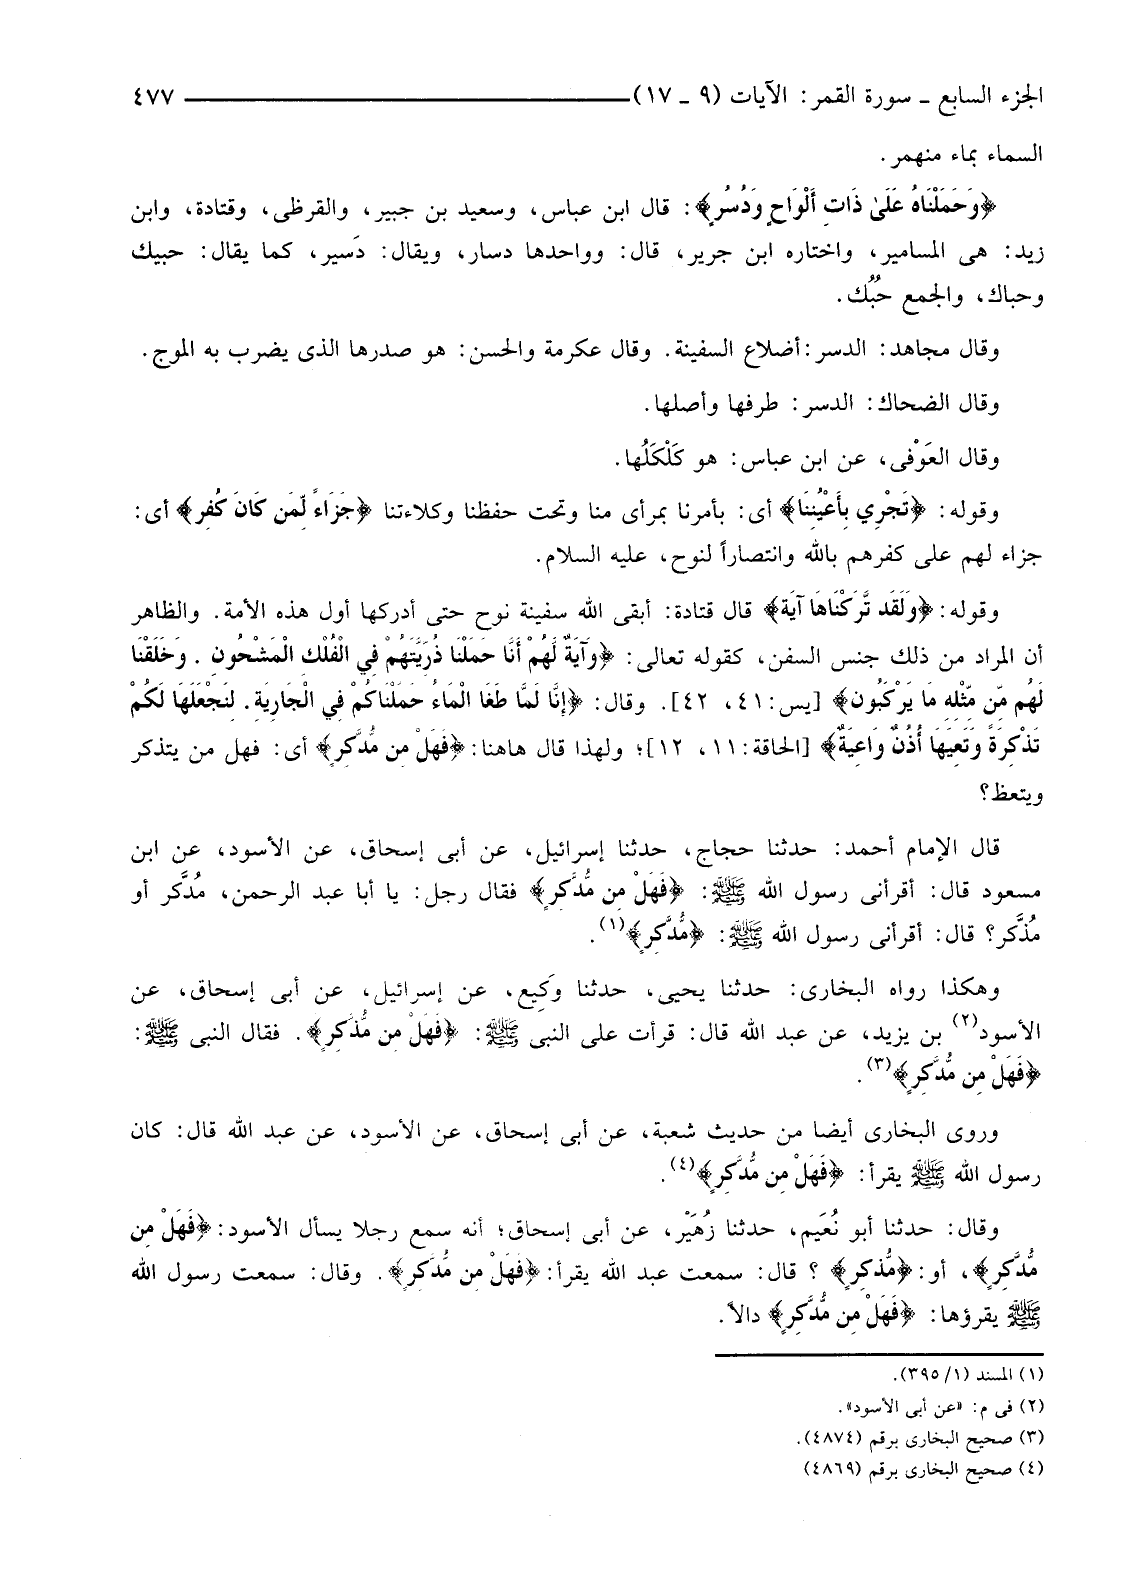 الجزء السابع ـ سورة القمر: الآيات (٩ ـ ١٧) ٤٧٧
السماء بماء منهمر.
﴿وَحَمَلْنَاهُ عَلَىٰ ذَاتِ أَلْوَاحٍ وَدُسُرٍ﴾: قال ابن عباس، وسعيد بن جبير، والقرظى، وقتادة، وابن
زيد: هى المسامير، واختاره ابن جرير، قال: وواحدها دسار، ويقال: دَسير، كما يقال: حبيك
وحباك، والجمع حُبُك.
وقال مجاهد: الدسر:أضلاع السفينة. وقال عكرمة والحسن: هو صدرها الذى يضرب به الموج.
وقال الضحاك: الدسر: طرفها وأصلها.
وقال العَوْفى، عن ابن عباس: هو كَلْكَلُها.
وقوله: ﴿تَجْرِي بِأَعْيُنِنَا﴾ أى: بأمرنا بمرأى منا وتحت حفظنا وكلاءتنا ﴿جَزَاءً لِّمَن كَانَ كُفِرَ﴾ أى:
جزاء لهم على كفرهم بالله وانتصاراً لنوح، عليه السلام.
وقوله: ﴿وَلَقَد تَّرَكْنَاهَا آيَةً﴾ قال قتادة: أبقى الله سفينة نوح حتى أدركها أول هذه الأمة. والظاهر
أن المراد من ذلك جنس السفن، كقوله تعالى: ﴿وَآيَةٌ لَّهُمْ أَنَّا حَمَلْنَا ذُرِّيَّتَهُمْ فِي الْفُلْكِ الْمَشْحُونِ . وَخَلَقْنَا
لَهُم مِّن مِّثْلِهِ مَا يَرْكَبُونَ﴾ [يس:٤١، ٤٢]. وقال: ﴿إِنَّا لَمَّا طَغَا الْمَاءُ حَمَلْنَاكُمْ فِي الْجَارِيَةِ. لِنَجْعَلَهَا لَكُمْ
تَذْكِرَةً وَتَعِيَهَا أُذُنٌ وَاعِيَةٌ﴾ [الحاقة:١١، ١٢]؛ ولهذا قال هاهنا:﴿فَهَلْ مِن مُّدَّكِرٍ﴾ أى: فهل من يتذكر
ويتعظ؟
قال الإمام أحمد: حدثنا حجاج، حدثنا إسرائيل، عن أبى إسحاق، عن الأسود، عن ابن
مسعود قال: أقرأنى رسول الله ﷺ: ﴿فَهَلْ مِن مُّدَّكِرٍ﴾ فقال رجل: يا أبا عبد الرحمن، مُدَّكر أو
مُذَّكر؟ قال: أقرأنى رسول الله ﷺ: ﴿مُّدَّكِرٍ﴾(١).
وهكذا رواه البخارى: حدثنا يحيى، حدثنا وَكِيع، عن إسرائيل، عن أبى إسحاق، عن
الأسود(٢) بن يزيد، عن عبد الله قال: قرأت على النبى ﷺ: ﴿فَهَلْ مِن مُّذَّكِرٍ﴾. فقال النبى ﷺ:
﴿فَهَلْ مِن مُّدَّكِرٍ﴾(٣).
وروى البخارى أيضا من حديث شعبة، عن أبى إسحاق، عن الأسود، عن عبد الله قال: كان
رسول الله ﷺ يقرأ: ﴿فَهَلْ مِن مُّدَّكِرٍ﴾(٤).
وقال: حدثنا أبو نُعَيم، حدثنا زُهَيْر، عن أبى إسحاق؛ أنه سمع رجلا يسأل الأسود:﴿فَهَلْ مِن
مُّدَّكِرٍ﴾، أو:﴿مُّذَّكِرٍ﴾ ؟ قال: سمعت عبد الله يقرأ:﴿فَهَلْ مِن مُّدَّكِرٍ﴾. وقال: سمعت رسول الله
ﷺ يقرؤها: ﴿فَهَلْ مِن مُّدَّكِرٍ﴾ دالاً.
(١) المسند (١/ ٣٩٥).
(٢) فى م: «عن أبى الأسود».
(٣) صحيح البخارى برقم (٤٨٧٤).
(٤) صحيح البخارى برقم (٤٨٦٩)